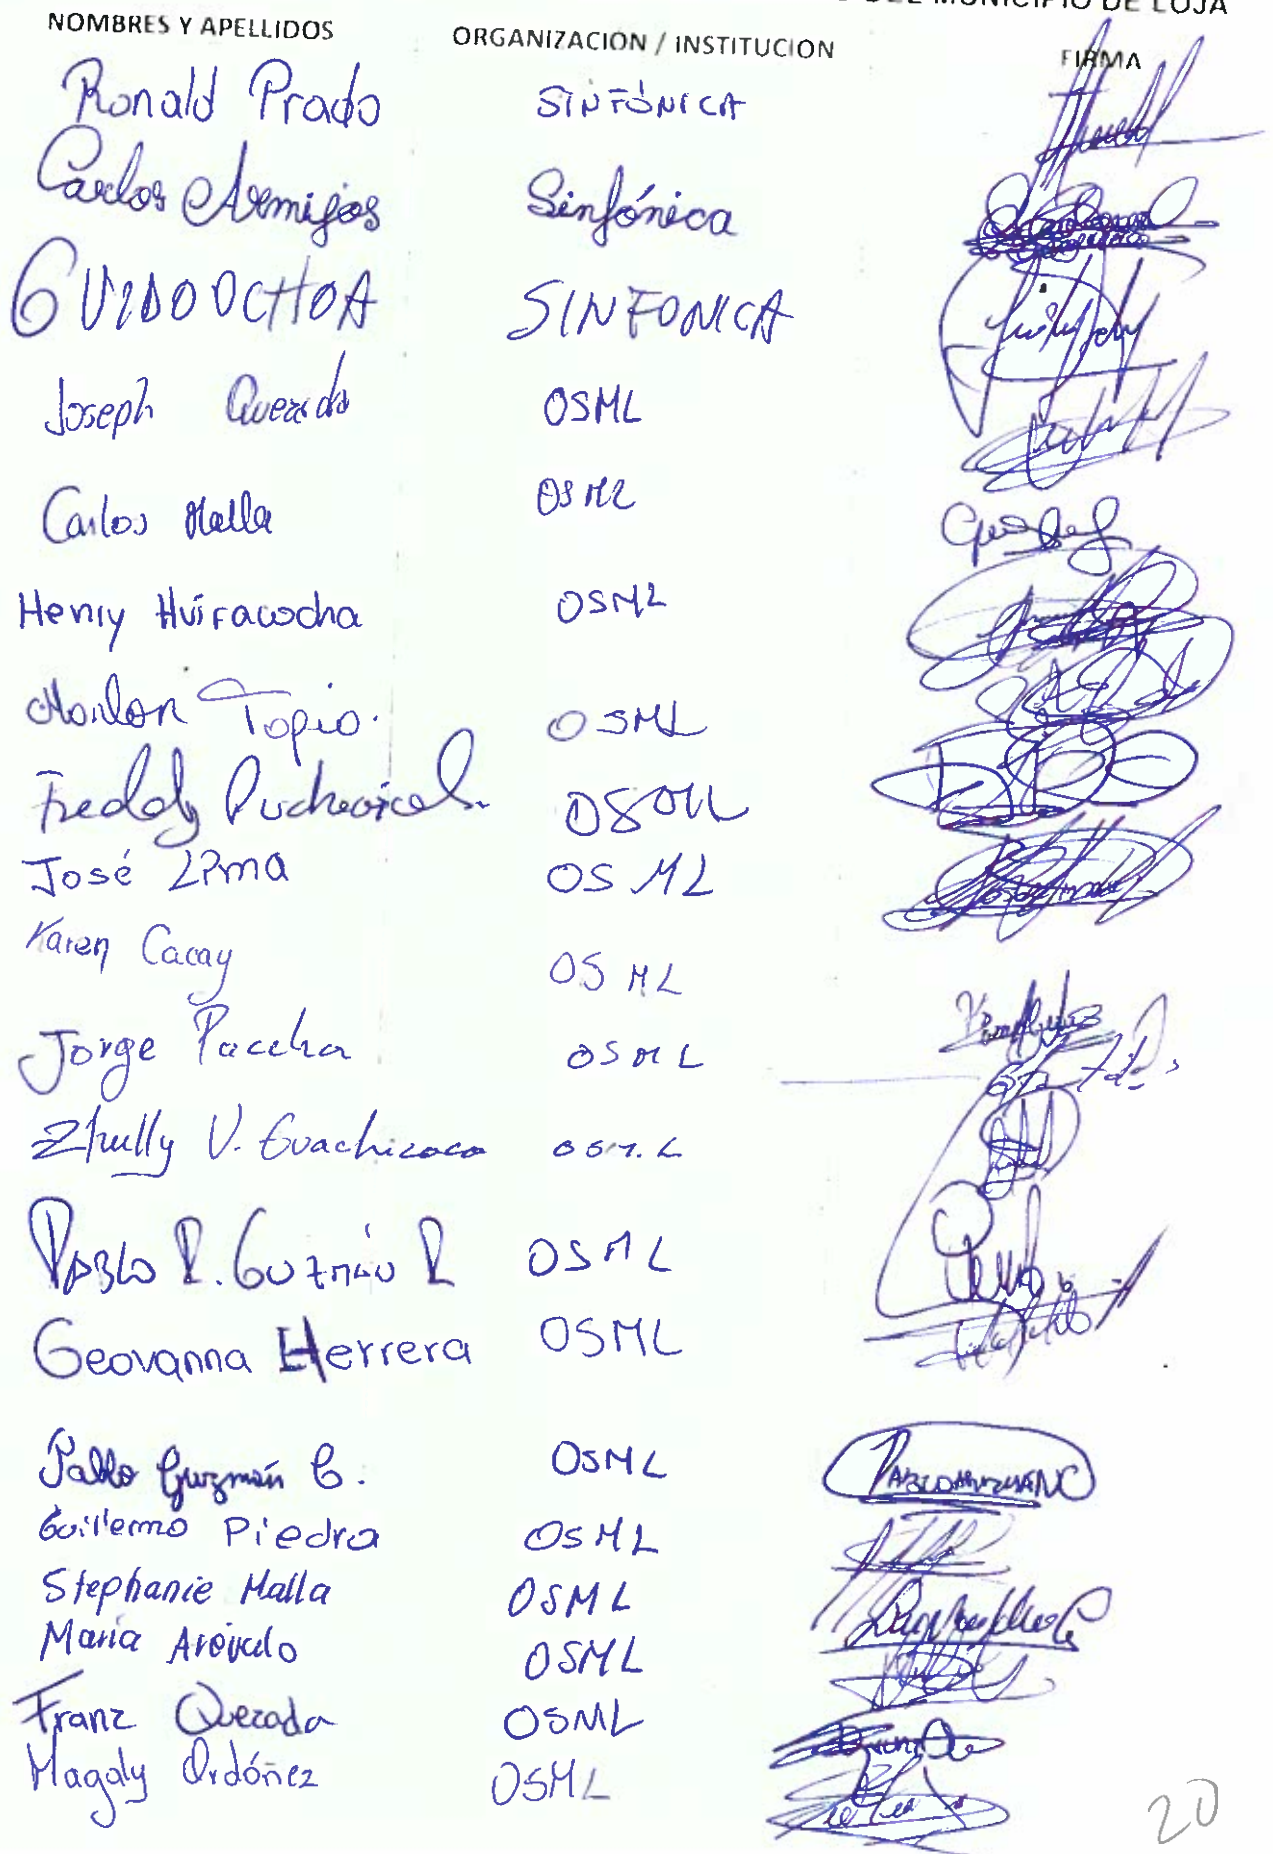 DEL MUNICIPIO DE LOJA
NOMBRES Y APELLIDOS ORGANIZACIÓN / INSTITUCION FIRMA
Ronald Prado SINFÓNICA
Carlos Armijos Sinfónica
GUIDO OCHOA SINFONICA
Joseph Quezada OSML
Carlos Malla OSML
Henry Huiracocha OSML
Marlon Topio. OSML
Freddy OSML
José Lima OSML
Karen Cacay OSML
Jorge Paccha OSML
Zhully V. Guachizaca OSM.L
PABLO R. GUZMÁN R OSML
Geovanna Herrera OSML
Pablo Guzmán C. OSML PABLO GUZMAN C
Guillermo Piedra OSML
Stephanie Malla OSML
María Arévalo OSML
Franz Quezada OSML
Magaly Ordóñez OSML
20